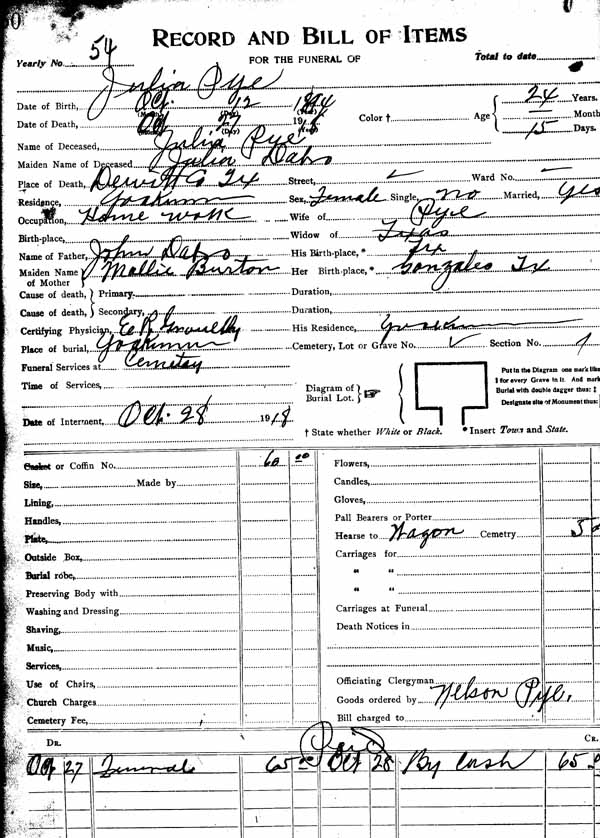 RECORD AND BILL OF ITEMS
FOR THE FUNERAL OF
Yearly No. 54
Total to date
Julia Pye
Date of Birth, Oct. 12 1894
Date of Death, Oct 27 191
Color †
Age 24 Years.
— Month
15 Days.
Name of Deceased, Julia Pye
Maiden Name of Deceased, Julia Dabs
Place of Death, Dewitt Co Tx Street, ✓ Ward No. —
Residence, Yoakum Sex, Female Single, No Married, Yes
Occupation, Home work Wife of Pye
Birth-place, Widow of Texas
Name of Father, John Dabs His Birth-place,* Tex
Maiden Name of Mother Mollie Burton Her Birth-place,* Gonzales Tx
Cause of death, Primary, Duration,
Cause of death, Secondary, Duration,
Certifying Physician, His Residence, Yoakum
Place of burial, Yoakum Cemetery, Lot or Grave No. ✓ Section No. 1
Funeral Services at Cemetery
Time of Services,
Date of Interment, Oct. 28 1918
Diagram of Burial Lot. ☞
Put in the Diagram one mark like
‡ for every Grave in it. And mark
Burial with double dagger thus: ‡
Designate site of Monument thus:
† State whether White or Black. * Insert Town and State.
Casket or Coffin No. 60 00 Flowers,
Size, Made by Candles,
Lining, Gloves,
Handles, Pall Bearers or Porter
Plate, Hearse to Wagon Cemetry 5
Outside Box, Carriages for
Burial robe, " "
Preserving Body with " "
Washing and Dressing Carriages at Funeral
Shaving, Death Notices in
Music,
Services,
Use of Chairs, Officiating Clergyman
Church Charges Goods ordered by Nelson Pye.
Cemetery Fee, Bill charged to
DR. Paid CR.
Oct 27 Funerals 65 00 Oct 28 By Cash 65